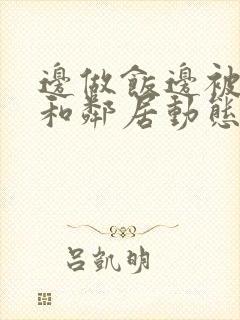 邊做飯邊被
和鄰居動態
呂凱明